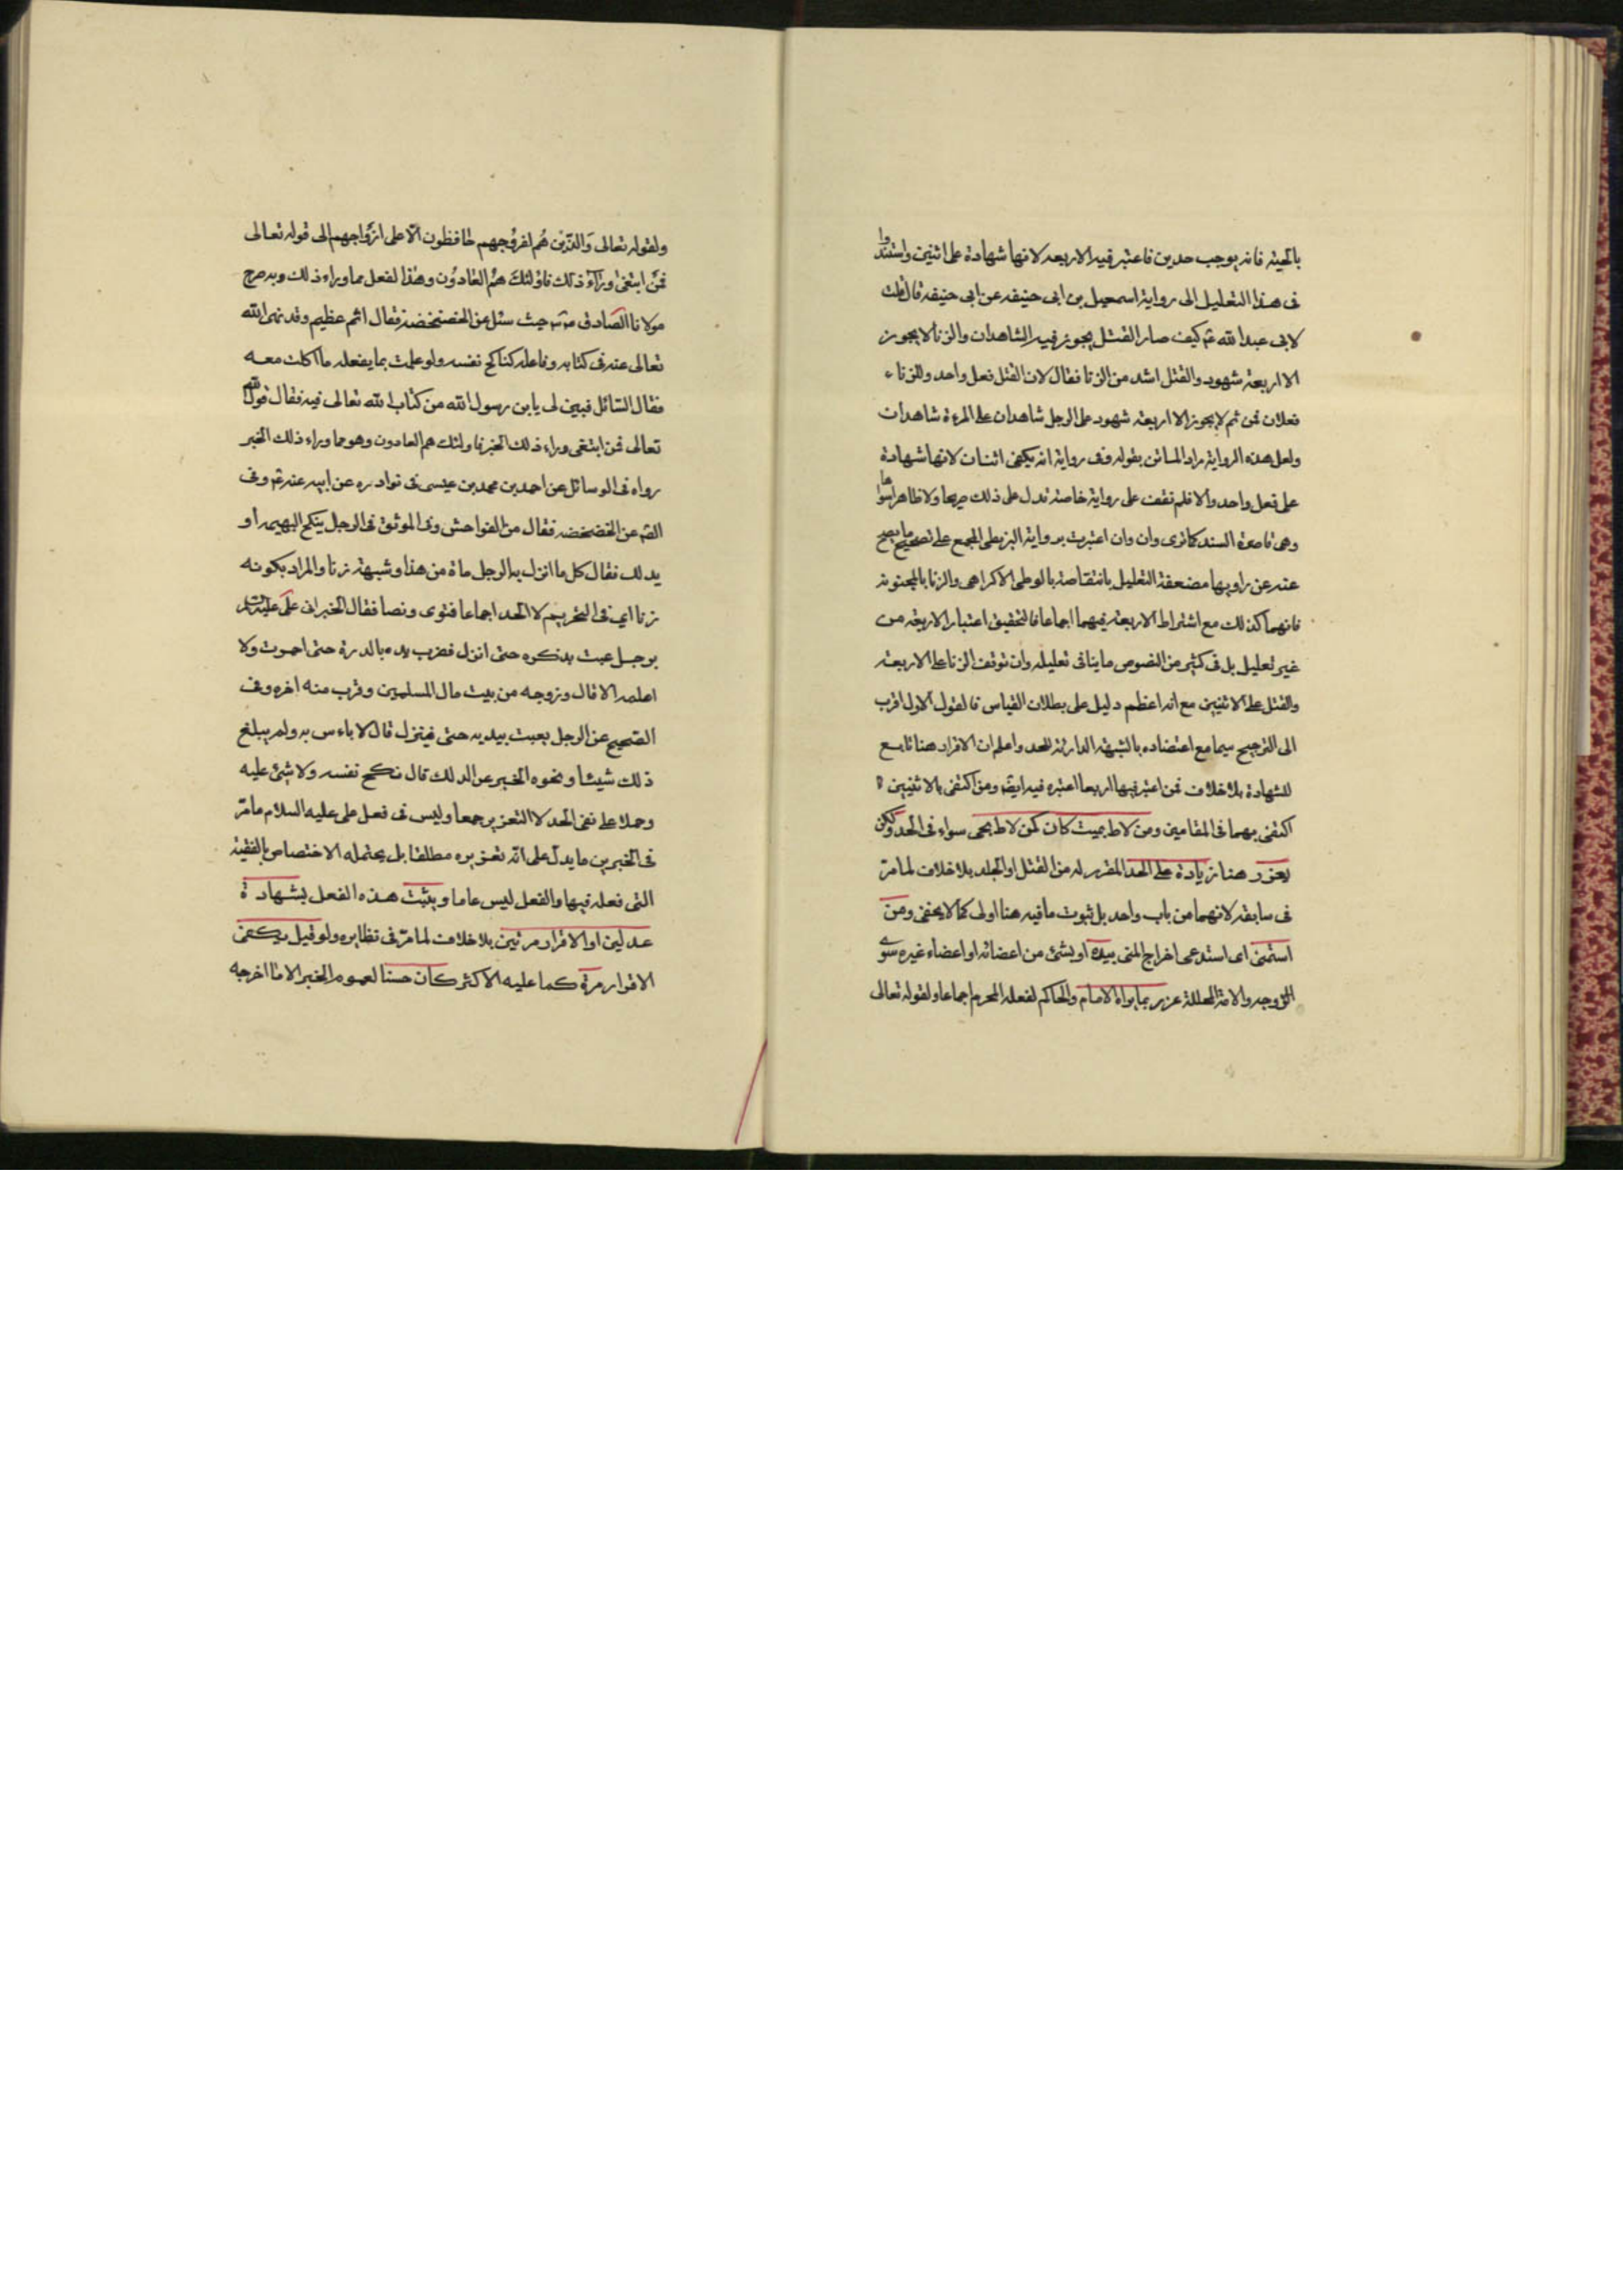 بالحية فانه يوجب حدين فاعتبر فيه الاربعه لانها شهادة على اثنين واستندوا
فى هذا التعليل الى رواية اسمعيل بن ابى حنيفه عن ابى حنيفه قال قلت
لابى عبد الله ع كيف صار القتل يجوز فيه الشاهدان والزنا لا يجوز
الا اربعة شهود والقتل اشد من الزنا فقال لان القتل فعل واحد والزناء
فعلان فمن ثم لا يجوز الا اربعة شهود على الرجل شاهدان على المرءة شاهدان
ولعل هذه الرواية مراد الماتن بقوله وفى رواية انه يكفى اثنان لانها شهادة
على فعل واحد والا فلم نقف على رواية خاصة تدل على ذلك صريحا ولا ظاهرا سواها
وهى قاصرة السند كما ترى وان وان اعتبرت برواية البزنطى المجمع على تصحيح ما يصح
عنه عن راويها مضعفة التعليل بانتقاضه بالوطى الاكراهى والزنا بالمجنونة
فانهما كذلك مع اشتراط الاربعة فيهما اجماعا فالتحقيق اعتبار الاربعة من
غير تعليل بل فى كثير من النصوص ما ينافى تعليله وان توقف الزنا على الاربعة
والقتل على الاثنين مع انه اعظم دليل على بطلان القياس فالقول الاول اقرب
الى الترجيح سيما مع اعتضاده بالشبهة الدارئة للحد واعلم ان الاقرار هنا تابع
للشهادة بلا خلاف فمن اعتبر فيها اربعا اعتبره فيه ايضا ومن اكتفى بالاثنين
اكتفى بهما فى المقامين ومن لاط بميت كان كمن لاط بحى سواء فى الحد ولكن
يعزر هنا زيادة على الحد المقرر له من القتل او الجلد بلا خلاف لما مر
فى سابقه لانهما من باب واحد بل ثبوت ما فيه هنا اولى كما لا يخفى ومن
استمنى اى استدعى اخراج المنى بيده او بشئ من اعضائه او اعضاء غيره سوى
الزوجه والامة المحللة عزر بما يراه الامام والحاكم لفعله المحرم اجماعا ولقوله تعالى
ولقوله تعالى وَالَّذين هُم لفرُوجهم حافظون الّا على ازْواجهم الى قوله تعالى
فمَن ابتغى وَرآءَ ذلك فاوُلئكَ همُ العادُون وهذا الفعل مما وراء ذلك وبه صرح
مولانا الصادق حيث سئل عن الخضخضة فقال اثم عظيم وقد نهى الله
تعالى عنه فى كتابه وفاعله كناكح نفسه ولو علمت بما يفعله ما اكلت معه
فقال السائل فبين لى يا بن رسول الله من كتاب الله تعالى فيه فقال قول الله
تعالى فمن ابتغى وراء ذلك الخبر فاولئك هم العادون وهو مما وراء ذلك الخبر
رواه فى الوسائل عن احمد بن محمد بن عيسى فى نوادره عن ابيه عنه ع وفى
عن الخضخضه فقال من الفواحش وفى الموثق فى الرجل ينكح البهيمه او
يدلك فقال كل ما انزل به الرجل ماءه من هذا وشبهه زنا والمراد بكونه
زنا اى فى التحريم لا الحد اجماعا فتوى ونصا فقال الخبر اتى على عليه السلام
برجل عبث بذكره حتى انزل فضرب يده بالدرة حتى احمرت ولا
اعلمه الا قال وزوجه من بيت مال المسلمين وقرب منه اخر وفى
الصحيح عن الرجل يعبث بيديه حتى فينزل قال لا باءس به ولم يبلغ
ذلك شيئا ونحوه الخبر عن الدلك قال نكح نفسه ولا شئ عليه
وحملا على نفى الحد لا التعزير جمعا وليس فى فعل على عليه السلام ما مرّ
فى الخبرين ما يدل على انه تعزيره مطلقا بل يحتمله الاختصاص بالقضية
التى فعله فيها والفعل ليس عاما ويثبت هذه الفعل بشهادة
عدلين او الاقرار مرتين بلا خلاف لما مرّ فى نظايره ولو قيل يكفى
الاقرار مرة كما عليه الاكثر كان حسنا لعموم الخبر الا ما اخرجه